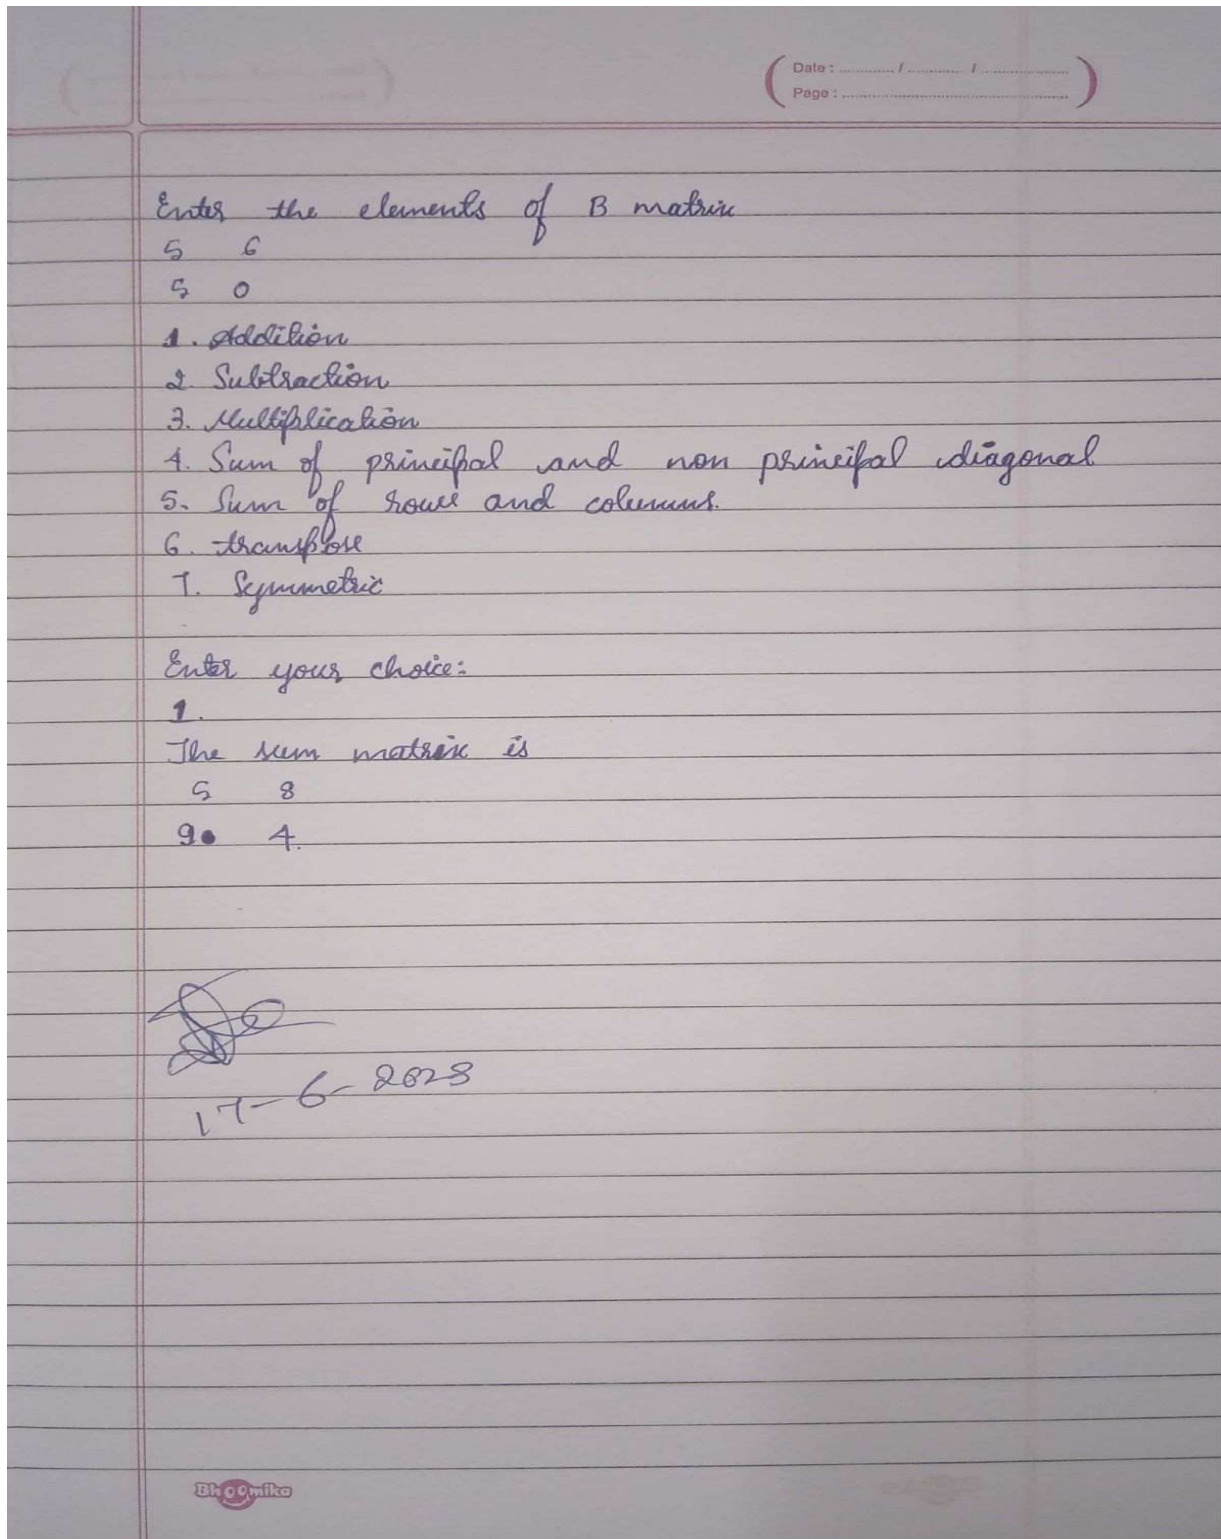 Date : ............ / ............ / ....................
Page : ..................................................
Enter the elements of B matrix
5 6
5 0
1. Addition
2. Subtraction
3. Multiplication
4. Sum of principal and non principal diagonal
5. Sum of rows and columns.
6. transpose
7. Symmetric
Enter your choice:
1.
The sum matrix is
5 8
9 4.
17-6-2023
Bhoomika